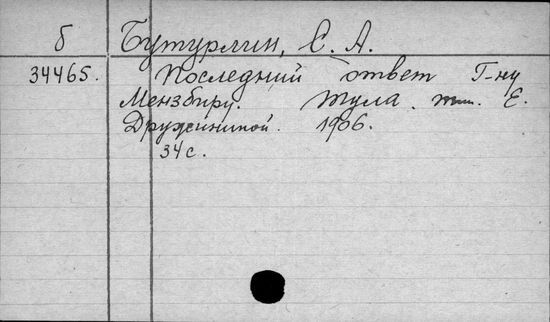 б Бутурлин, С. А.
34465. Последний ответ Г-ну
Мензбиру. Тула. тип. Е.
Дружининой. 1906.
34 с.